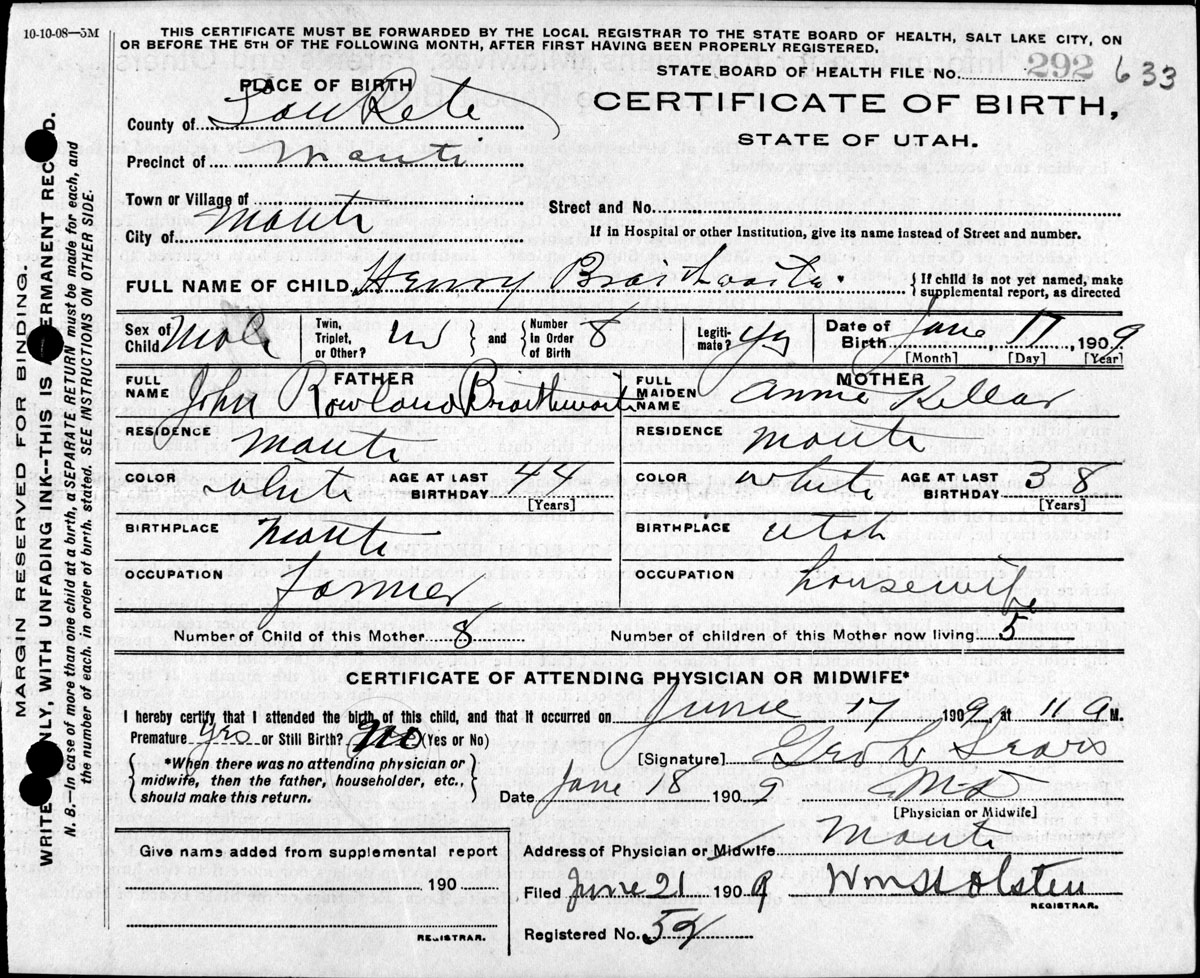 10-10-08—5M
THIS CERTIFICATE MUST BE FORWARDED BY THE LOCAL REGISTRAR TO THE STATE BOARD OF HEALTH, SALT LAKE CITY, ON
OR BEFORE THE 5TH OF THE FOLLOWING MONTH, AFTER FIRST HAVING BEEN PROPERLY REGISTERED.
STATE BOARD OF HEALTH FILE No. 292 633
PLACE OF BIRTH
CERTIFICATE OF BIRTH,
STATE OF UTAH.
County of San Pete
Precinct of Manti
Town or Village of
Street and No.
City of Manti
If in Hospital or other Institution, give its name instead of Street and number.
FULL NAME OF CHILD Henry Braithwaite. { If child is not yet named, make supplemental report, as directed
Sex of Child Male Twin, Triplet, or Other? } and { Number In Order of Birth 8 Legiti- mate? yes Date of Birth June, 17, 1909
[Month] [Day] [Year]
FATHER
FULL NAME John Rowland Braithwaite
RESIDENCE Manti
COLOR white AGE AT LAST BIRTHDAY 44
[Years]
BIRTHPLACE Manti
OCCUPATION farmer
MOTHER
FULL MAIDEN NAME Annie Kellar
RESIDENCE Manti
COLOR white AGE AT LAST BIRTHDAY 38
[Years]
BIRTHPLACE Utah
OCCUPATION housewife
Number of Child of this Mother 8 Number of children of this Mother now living 5
CERTIFICATE OF ATTENDING PHYSICIAN OR MIDWIFE*
I hereby certify that I attended the birth of this child, and that it occurred on June 17 1909 at 11 a M.
Premature yes or Still Birth? No (Yes or No)
{ *When there was no attending physician or
midwife, then the father, householder, etc.,
should make this return. }
[Signature] Geo L Sears
Date June 18 1909 MD
[Physician or Midwife]
Address of Physician or Midwife Manti
Filed June 21 1909 Wm Holsten
REGISTRAR.
Registered No. 52
Give name added from supplemental report
190
REGISTRAR.
MARGIN RESERVED FOR BINDING.
WRITE ONLY, WITH UNFADING INK--THIS IS PERMANENT RECORD.
N. B.—In case of more than one child at a birth, a SEPARATE RETURN must be made for each, and
the number of each. in order of birth. stated. SEE INSTRUCTIONS ON OTHER SIDE.